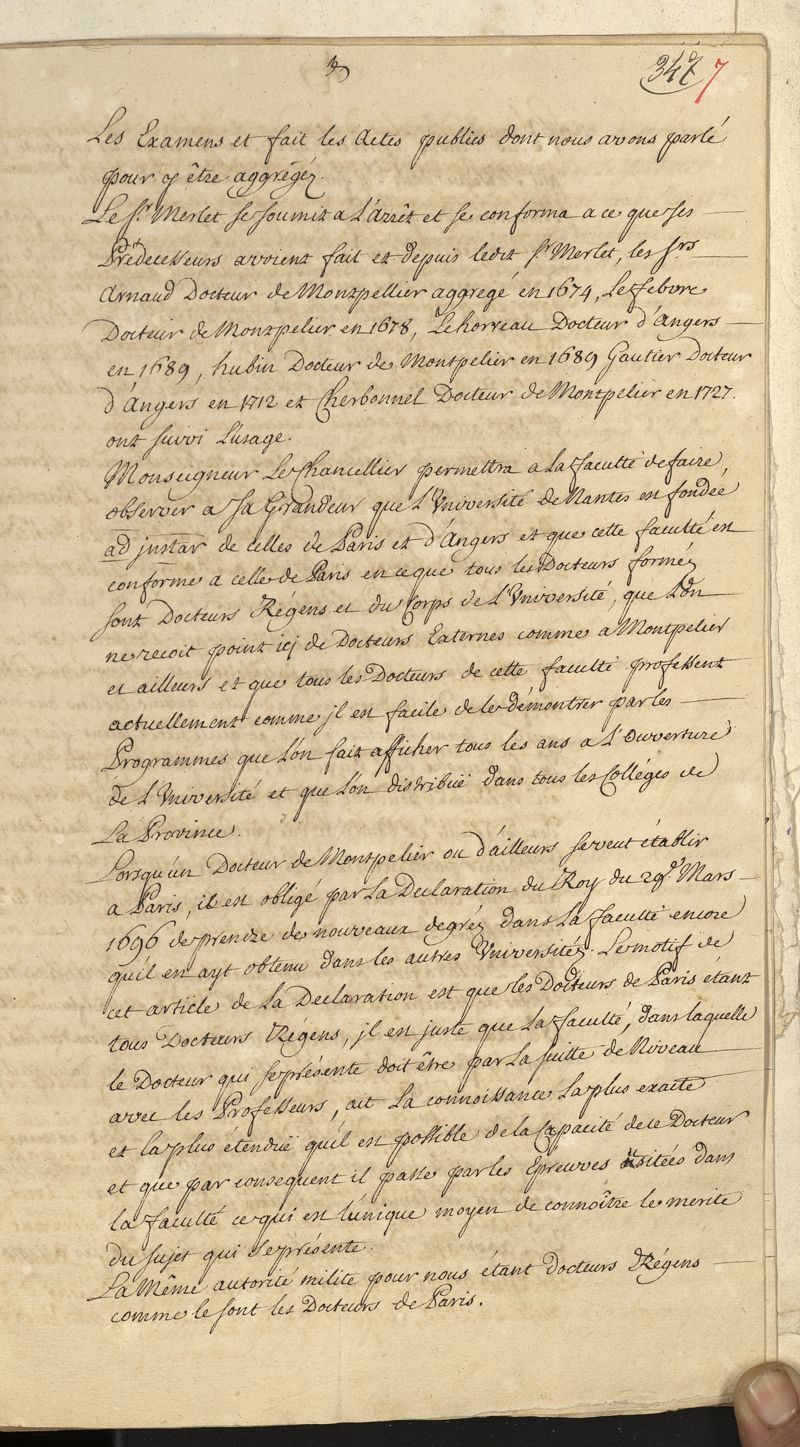 3
347 7
Les Examens et fait les Actes publics dont nous avons parlé
pour y être aggrégéz.
Le Sr. Merlet se soumit a L'Arrêt et se conforma a ce que ses
Prédecesseurs avoient fait et depuis ledit Sr Merlet, les Srs
Arnaud Docteur de Montpellier aggrégé en 1674, Lefebvre
Docteur de Montpelier en 1678, Lehorreau Docteur d'Angers
en 1689, hubin Docteur de Montpelier en 1689 Gautier Docteur
d'Angers en 1712 et Cherbonnel Docteur de Montpelier en 1727.
ont suivi L'usage.
Monseigneur Le Chancellier permettra a La faculté de faire
observer a Sa Grandeur que L'Université de Nantes en fondée
ad justar de celles de Paris et d'Angers et que cette faculté en
conforme a celle de Paris en ce que tous les Docteurs forméz
sont Docteurs Régens et du Corps de L'Université, que L'on
ne recoit point icj de Docteurs Externes comme a Montpelier
et ailleurs et que tous les Docteurs de cette faculté professent
actuellement comme jl en facile de le démontrer par les
Programmes que L'on fait afficher tous les ans a L'Ouverture
de L'Université et que L'on distribuë dans tous les Colléges de
La Province.
Lorsqu'un Docteur de Montpelier ou d'ailleurs se veut établir
a Paris, il en obligé par La Declaration du Roy du 29e. Mars
1696 de prendre de nouveaux degréz dans La faculté encore
qu'il en ayt obtenu dans les autres Universitéz. Le motif de
cet article de La Declaration est que les Docteurs de Paris étant
tous Docteurs Régens, jl en juste que La faculté, dans laquelle
le Docteur qui se présente doit être par La suitte de Niveau
avec les Professeurs, ait La connoissance La plus exacte
et la plus étenduë qu'il en possible de la Capacité de ce Docteur
et que par consequent il passe par les Epreuves usitées dans
la faculté ce qui en l'unique moyen de connoître le merite
du sujet qui se présente.
La Même autorité milite pour nous étant Docteurs Régens
comme le sont les Docteurs de Paris.